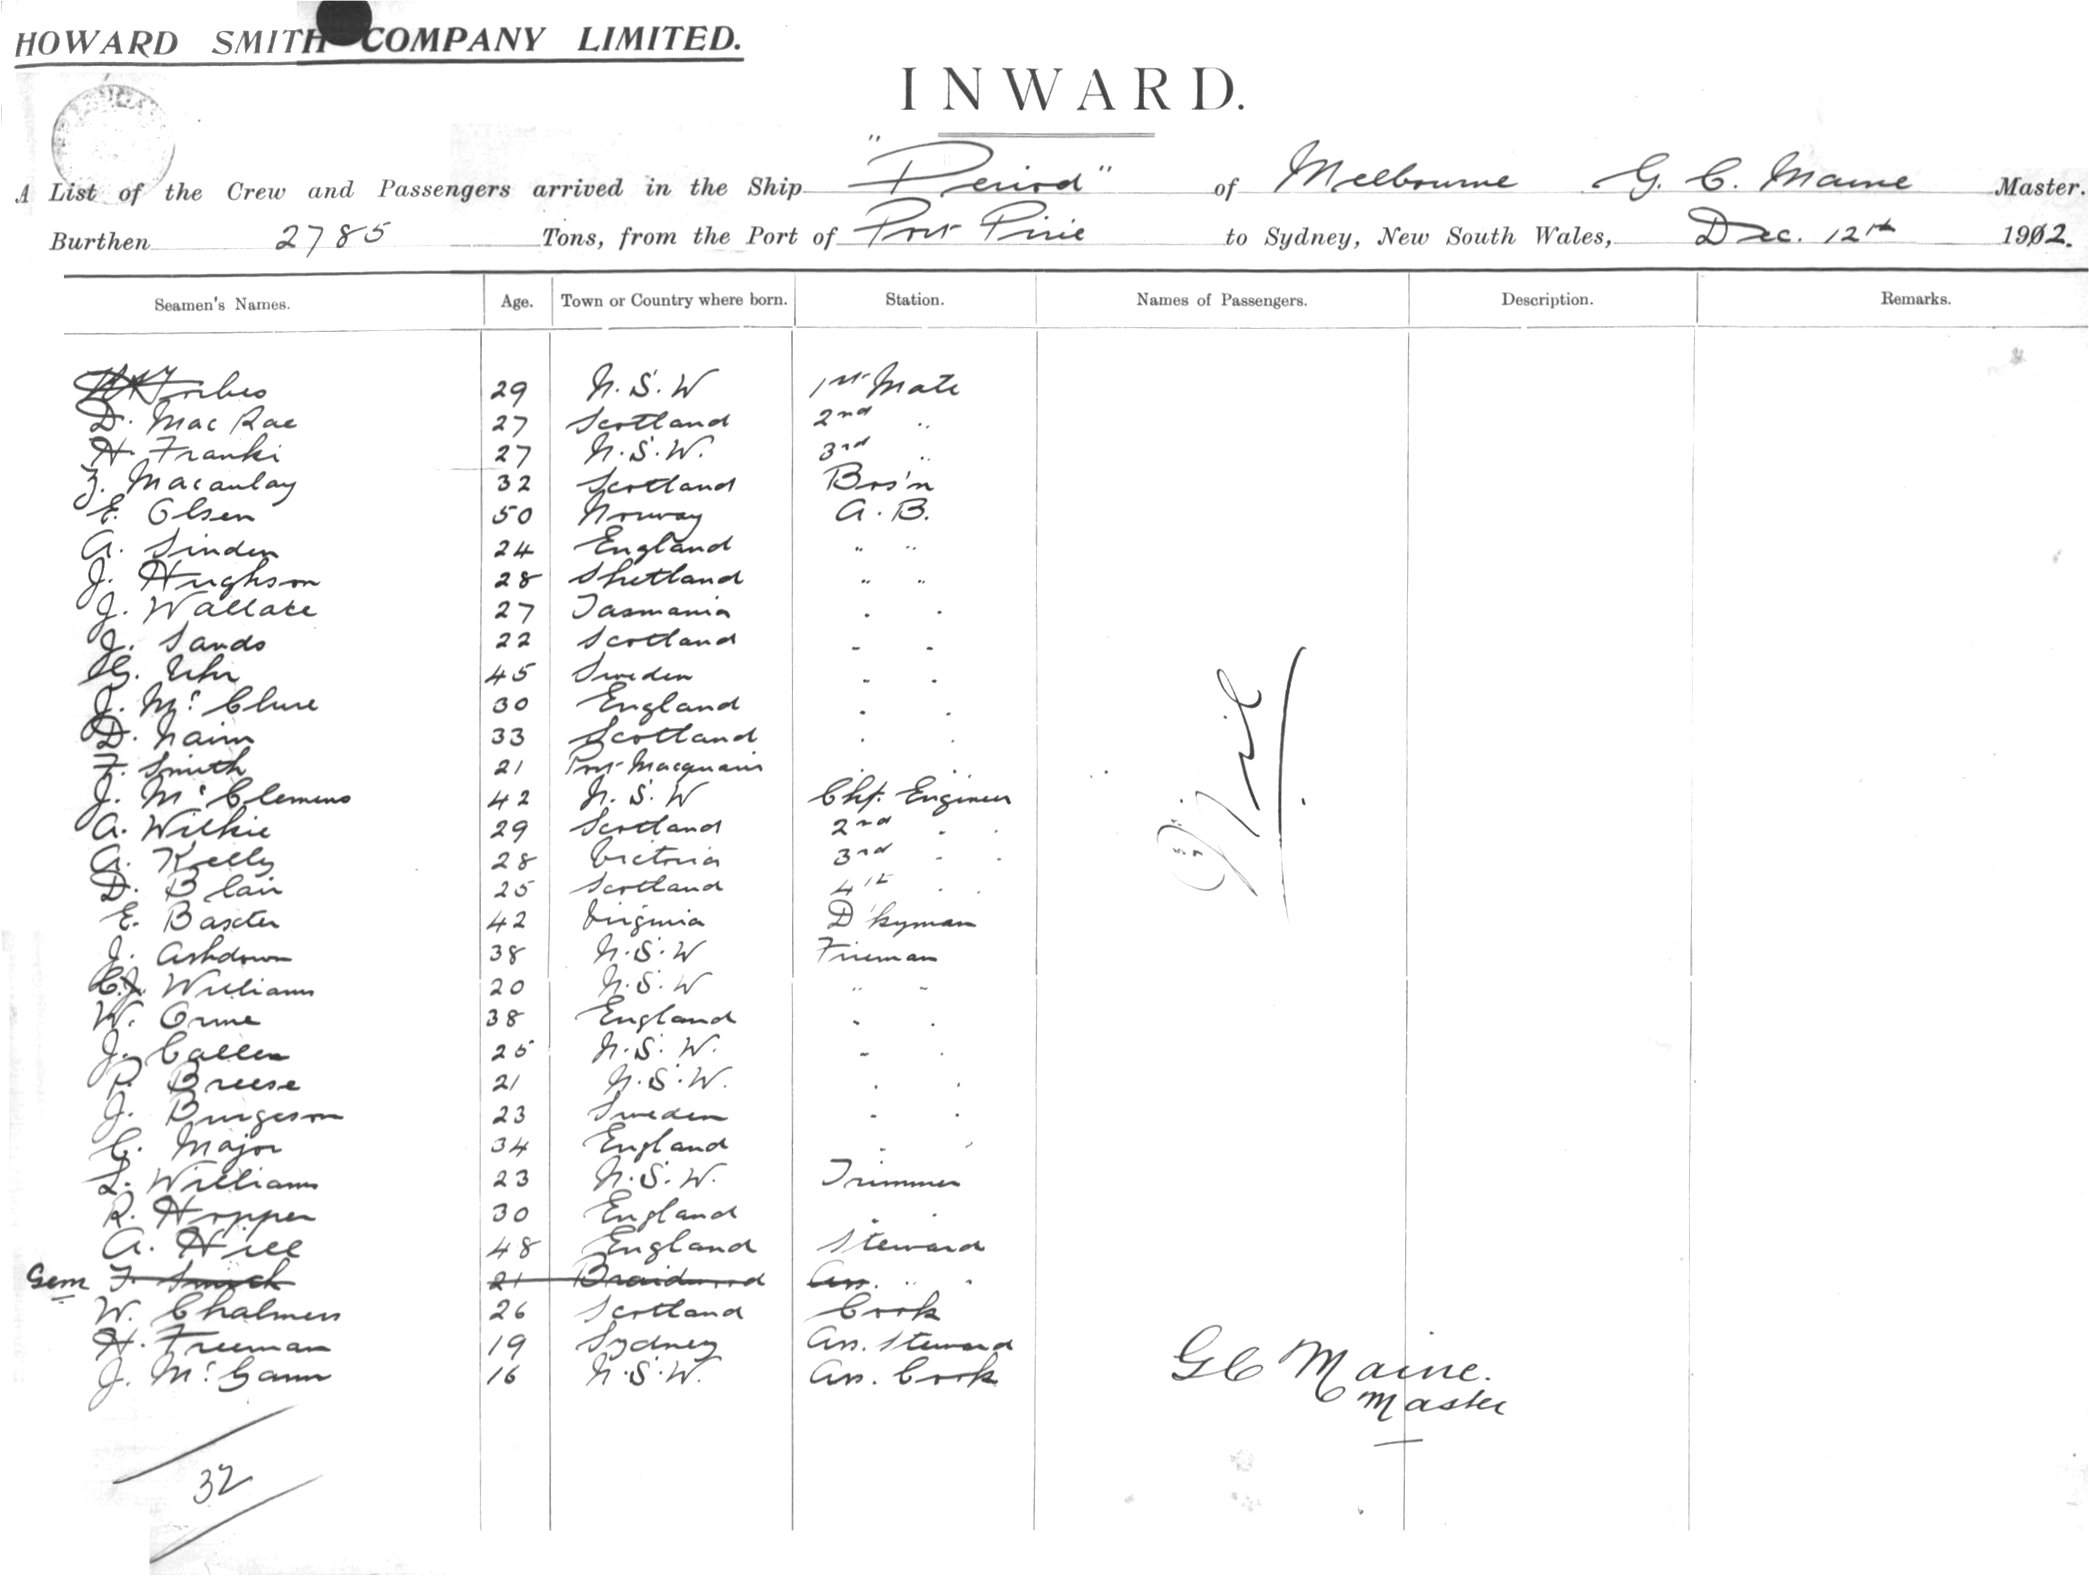 HOWARD SMITH COMPANY LIMITED.
INWARD.
A List of the Crew and Passengers arrived in the Ship "Period" of Melbourne G. C. Maine Master.
Burthen 2785 Tons, from the Port of Port Pirie to Sydney, New South Wales, Dec. 12th 1902.
Seamen's Names. Age. Town or Country where born. Station. Names of Passengers. Description. Remarks.
Forbes 29 N.S.W 1st Mate
D. MacRae 27 Scotland 2nd "
H. Franki 27 N.S.W. 3rd "
Z. Macaulay 32 Scotland Bos'n
E. Olsen 50 Norway A.B.
A. Sinden 24 England " "
J. Hughson 28 Shetland " "
J. Wallace 27 Tasmania " "
J. Sands 22 Scotland " "
G. Uhr 45 Sweden " "
J. McClure 30 England " "
D. Nairn 33 Scotland " "
F. Smith 21 Port Macquarie " "
J. McClemens 42 N.S.W Chf. Engineer
A. Wilkie 29 Scotland 2nd " "
A. Kelly 28 Victoria 3rd " "
D. Blair 25 Scotland 4th " "
E. Baxter 42 Virginia D'kyman
J. Ashdown 38 N.S.W Fireman
C.J. Williams 20 N.S.W " "
W. Orme 38 England " "
J. Callen 25 N.S.W. " "
P. Breese 21 N.S.W. " "
J. Burgeson 23 Sweden " "
C. Major 34 England " "
L. Williams 23 N.S.W. Trimmer
R. Hopper 30 England " "
A. Hill 48 England Steward
Gem F. Smith 21 Braidwood Ass. " "
W. Chalmers 26 Scotland Cook
H. Freeman 19 Sydney Ass. Steward
J. McGann 16 N.S.W. Ass. Cook
Nil
G C Maine.
Master
32